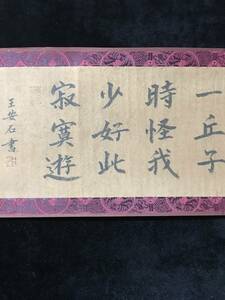 一丘子
時怪我
少好此
寂寞遊
王安石書